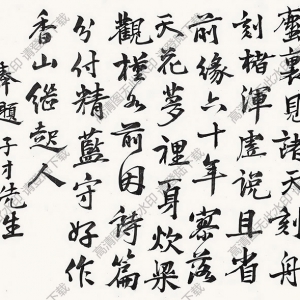 蜃裏見諸天刻舟
刻楮渾虛說且省
前緣六十年寥落
天花夢裡身炊粱
觀槿為前因詩篇
分付精藍守好作
香山繼起人
奉題子才先生